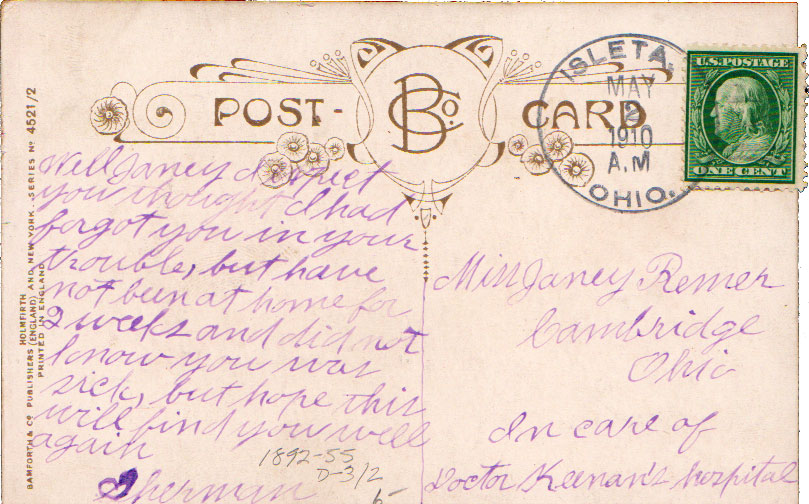 POST- BCo. CARD
ISLETA.
MAY
2
1910
A.M
OHIO.
U.S. POSTAGE
ONE CENT
Well Janey I expect
you thought I had
forgot you in your
trouble, but have
not been at home for
2 weeks and did not
know you was
sick, but hope this
will find you well
again
Sherman
1892-55
D-3/2
6-
Miss Janey Remer
Cambridge
Ohio
In care of
Doctor Keenan's hospital
HOLMFIRTH
BAMFORTH & Co PUBLISHERS (ENGLAND) AND NEW YORK. SERIES No 4521/2
PRINTED IN ENGLAND